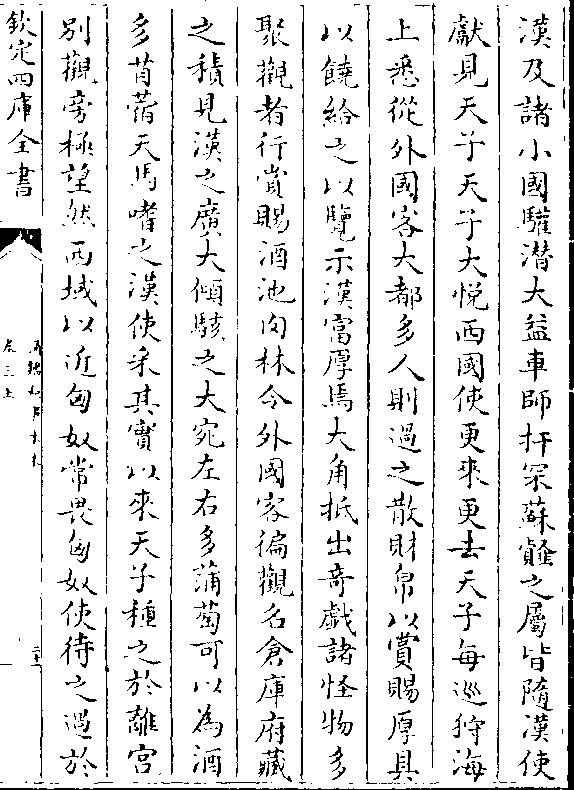 漢及諸小國驩潛大益車師扞冞蘇䪥之屬皆隨漢使
獻見天子天子大悅西國使更來更去天子每巡狩海
上悉從外國客大都多人則過之散財帛以賞賜厚具
以饒給之以覽示漢富厚焉大角抵出竒戲諸怪物多
聚觀者行賞賜酒池肉林令外國客徧觀名倉庫府藏
之積見漢之廣大傾駭之大宛左右多蒲萄可以為酒
多苜蓿天馬嗜之漢使采其實以來天子種之於離宮
別觀旁極望然西域以近匈奴常畏匈奴使待之過於
欽定四庫全書
卷三上